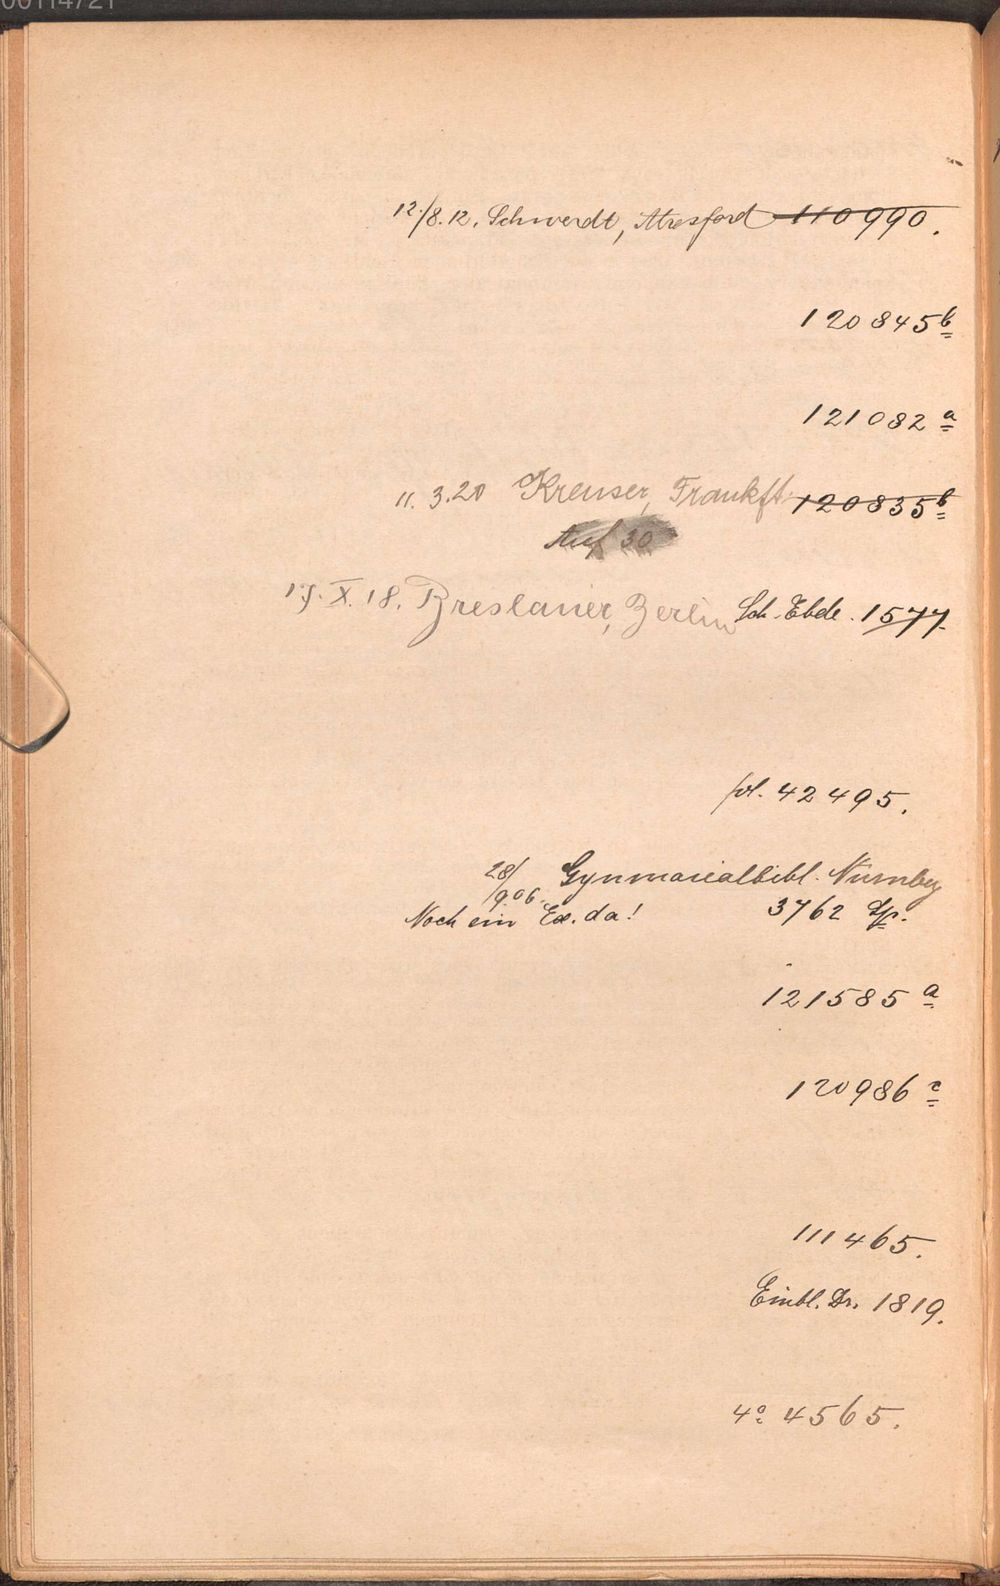 00114721
12./8.12. Schwerdt, Alresford 110990.
120845 b
121082 a
11. 3.20 Kreuser, Frankft. 120835 b
Auf 30
17. X. 18. Breslauer, Berlin Sch. Ebde. 1577.
fol. 42495.
28/9.06. Gymnasialbibl. Nürnberg
Noch ein Ex. da! 3762
121585 a
120986 c
111465.
Einbl. Dr. 1819.
4o. 4565.